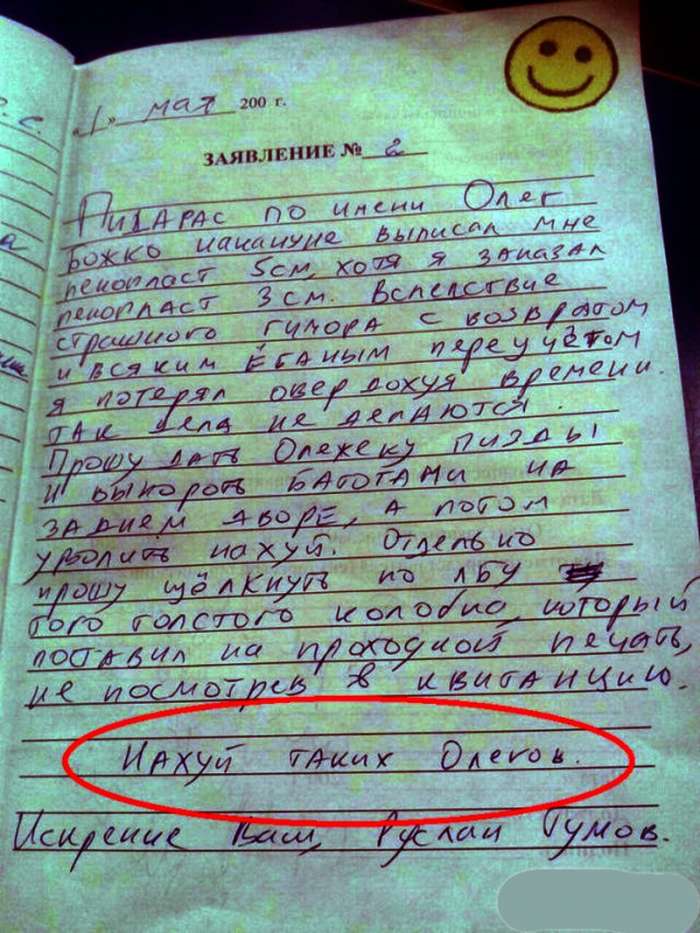 с.
«1» мая 200 г.
ЗАЯВЛЕНИЕ № 2
Пидарас по имени Олег
Божко накануне выписал мне
пенопласт 5см, хотя я заказал
пенопласт 3см. Вследствие
страшного гимора с возвратом
и всяким ёбаным переучётом
я потерял овердохуя времени.
Так дела не делаются.
Прошу дать Олежеку пизды
и выпороть батогами на
заднем дворе, а потом
уволить нахуй. Отдельно
прошу щёлкнуть по лбу
того толстого колобка, который
поставил на проходной печать,
не посмотрев в квитанцию.
Нахуй таких Олегов.
Искренне Ваш, Руслан Гумов.